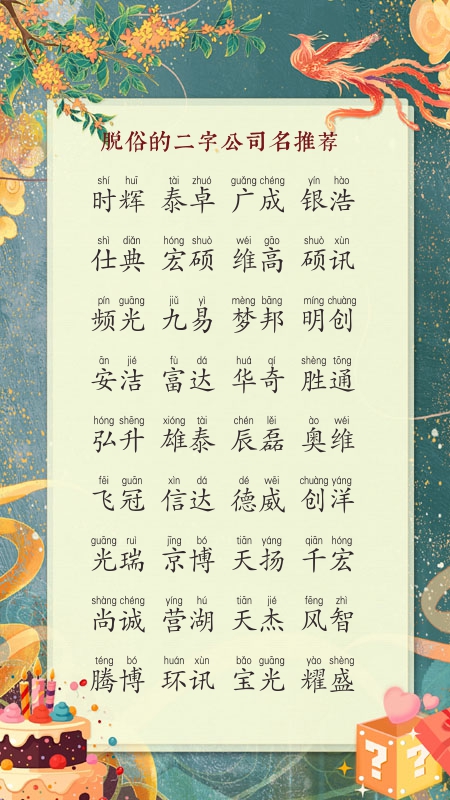 脱俗的二字公司名推荐
shí huī tài zhuó guǎng chéng yín hào
时辉 泰卓 广成 银浩
shì diǎn hóng shuò wéi gāo shuò xùn
仕典 宏硕 维高 硕讯
pín guāng jiǔ yì mèng bāng míng chuàng
频光 九易 梦邦 明创
ān jié fù dá huá qí shèng tōng
安洁 富达 华奇 胜通
hóng shēng xióng tài chén lěi ào wéi
弘升 雄泰 辰磊 奥维
fēi guān xìn dá dé wēi chuàng yáng
飞冠 信达 德威 创洋
guāng ruì jīng bó tiān yáng qiān hóng
光瑞 京博 天扬 千宏
shàng chéng yíng hú tiān jié fēng zhì
尚诚 营湖 天杰 风智
téng bó huán xùn bǎo guāng yào shèng
腾博 环讯 宝光 耀盛
? ?